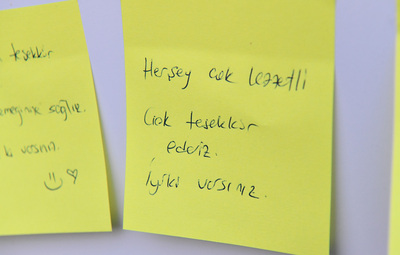 teşekkür
emeğinize sağlık.
Herşey çok lezzetli
Çok teşekkür
ederiz.
İyiki varsınız.